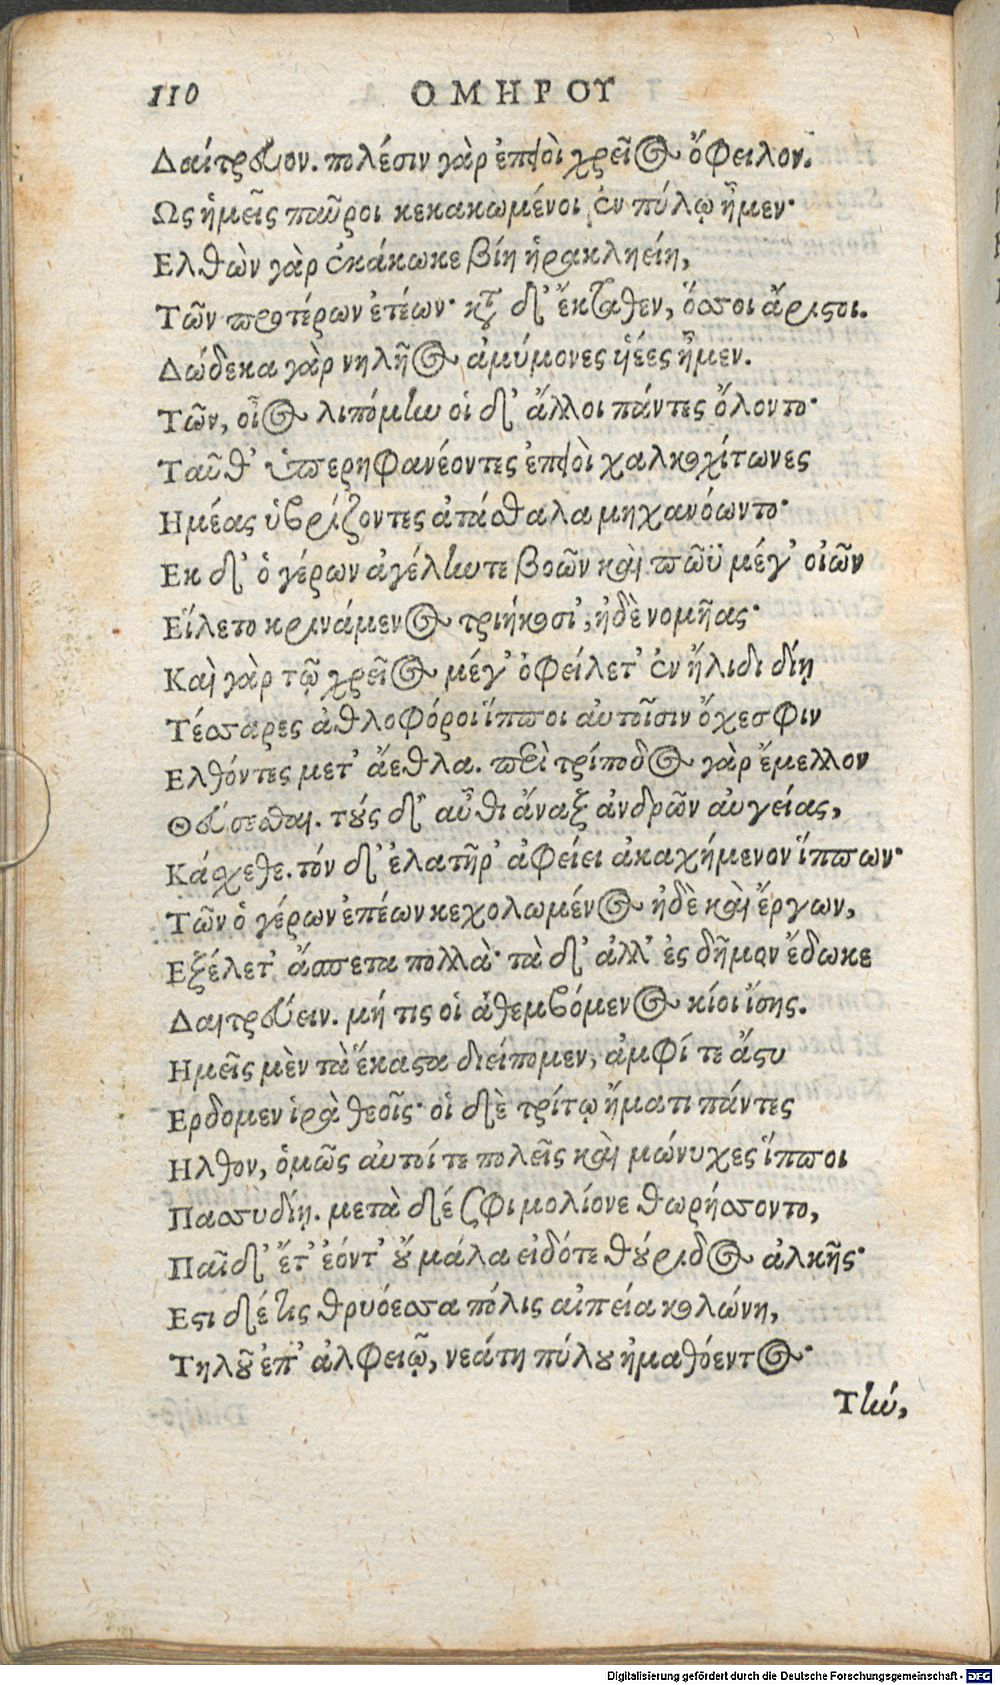 110 ΟΜΗΡΟΥ
Δαίτρευον. πολέσιν γὰρ ἐπειοὶ χρεῖος ὄφειλον.
Ως ἡμεῖς παῦροι κεκακωμένοι ἐν πύλῳ ἦμεν·
Ελθὼν γὰρ ἐκάκωκε βίη ἡρακληείη,
Τῶν προτέρων ἐτέων· κατὰ δ' ἔκταθεν, ὅσσοι ἄριστοι.
Δώδεκα γὰρ νηλῆος ἀμύμονες ὑέες ἦμεν.
Τῶν, οἶος λιπόμην οἱ δ' ἄλλοι πάντες ὄλοντο·
Ταῦθ' ὑπερηφανέοντες ἐπειοὶ χαλκοχίτωνες
Ημέας ὑβρίζοντες ἀτάσθαλα μηχανόωντο·
Εκ δ' ὁ γέρων ἀγέλην τε βοῶν καὶ πῶϋ μέγ' οἰῶν
Εἵλετο κρινάμενος τριήκοσι', ἠδὲ νομῆας·
Καὶ γὰρ τῷ χρεῖος μέγ' ὀφείλετ' ἐν ἤλιδι δίῃ
Τέσσαρες ἀθλοφόροι ἵπποι αὐτοῖσιν ὄχεσφιν
Ελθόντες μετ' ἄεθλα. περὶ τρίποδος γὰρ ἔμελλον
Θεύσεσθαι. τούς δ' αὖθι ἄναξ ἀνδρῶν αὐγείας,
Κάσχεθε. τόν δ' ἐλατῆρ' ἀφείει ἀκαχήμενον ἵππων·
Τῶν ὁ γέρων ἐπέων κεχολωμένος ἠδὲ καὶ ἔργων,
Εξέλετ' ἄσπετα πολλὰ· τὰ δ' ἀλλ' ἐς δῆμον ἔδωκε
Δαιτρεύειν. μή τις οἱ ἀθεμβόμενος κίοι ἴσης.
Ημεῖς μὲν τὰ ἕκαστα διείπομεν, ἀμφί τε ἄστυ
Ερδομεν ἱρὰ θεοῖς· οἱ δὲ τρίτῳ ἤματι πάντες
Ηλθον, ὁμῶς αὐτοί τε πολεῖς καὶ μώνυχες ἵπποι
Πασσυδίῃ. μετὰ δέ σφι μολίονε θωρήσσοντο,
Παῖδ' ἔτ' ἐόντ' οὔ μάλα εἰδότε θούριδος ἀλκῆς·
Εστι δέ τις θρυόεσσα πόλις αἰπεία κολώνη,
Τηλοῦ ἐπ' ἀλφειῷ, νεάτη πύλου ἠμαθόεντος·
Τήν,
Digitalisierung gefördert durch die Deutsche Forschungsgemeinschaft - DFG